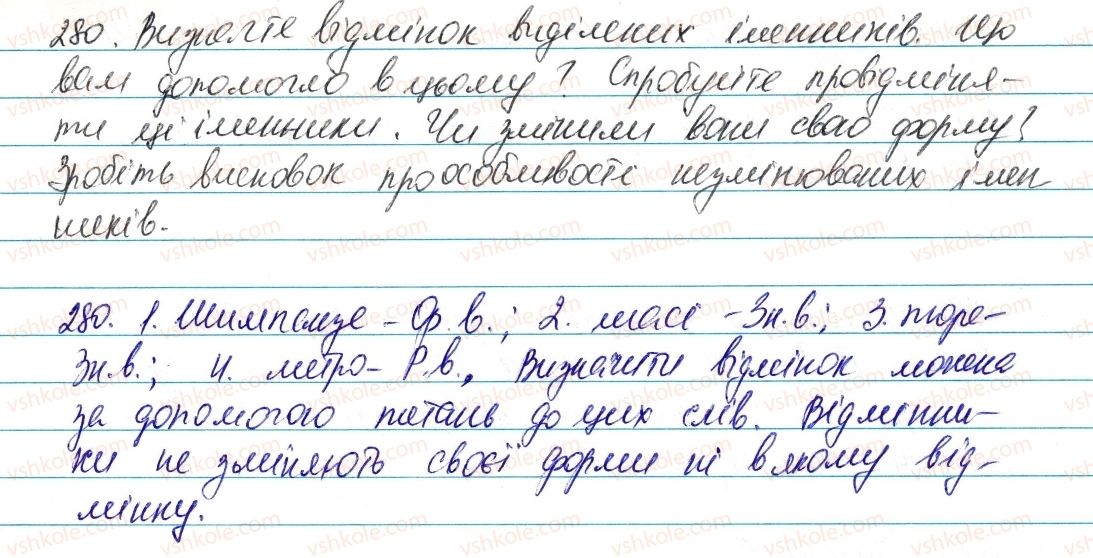 280. Визначте відмінок виділених іменників. Що
вам допомогло в цьому? Спробуйте провідміня-
ти ці іменники. Чи змінили вони свою форму?
Зробіть висновок про особливості незмінюваних імен
ників.
280. 1. Шимпанзе - Ор.в.; 2. шасі - Зн.в.; 3. тюре-
Зн.в.; 4. метро- Р.в., Визначити відмінок можна
за допомогою питань до цих слів. Відмінни-
ки не змінюють своєї форми ні в якому від-
мінку.